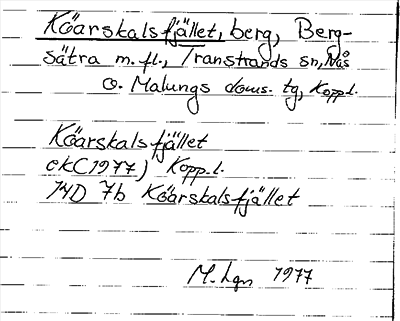 Köarskalsfjället, berg, Berg-
sätra m.fl., Transtrands sn, Nås
o. Malungs doms. tg, Kopp.l.
Köarskalsfjället
ek(1977) Kopp.l.
14D 7b Köarskalsfjället
M. Lgn 1977